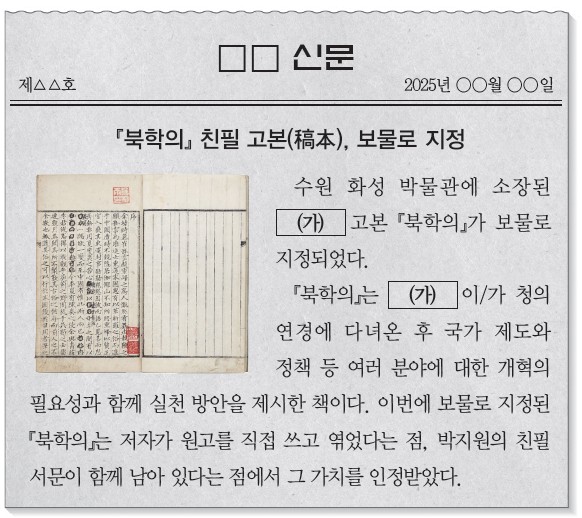 □□ 신문
제△△호 2025년 ○○월 ○○일
『북학의』 친필 고본(稿本), 보물로 지정
수원 화성 박물관에 소장된
(가) 고본 『북학의』가 보물로
지정되었다.
『북학의』는 (가) 이/가 청의
연경에 다녀온 후 국가 제도와
정책 등 여러 분야에 대한 개혁의
필요성과 함께 실천 방안을 제시한 책이다. 이번에 보물로 지정된
『북학의』는 저자가 원고를 직접 쓰고 엮었다는 점, 박지원의 친필
서문이 함께 남아 있다는 점에서 그 가치를 인정받았다.